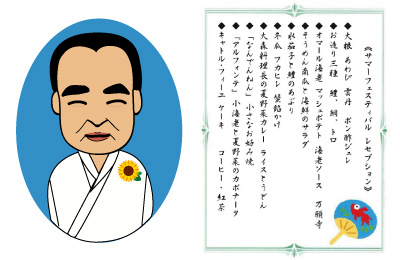 《サマーフェスティバル レセプション》
◆大根 あわび 雲丹 ポン酢ジュレ
◆お造り三種 鱧 鯛 トロ
◆オマール海老 マッシュポテト 海老ソース 万願寺
◆そうめん南瓜と海鮮のサラダ
◆水茄子と鱧のあぶり
◆冬瓜 フカヒレ 蟹餡かけ
◆大森料理長の夏野菜カレー ライスとうどん
◆「なんでんねん」 小さなお好み焼
◆「アルフィンテ」 小海老と夏野菜のカポナータ
◆キャトル・フィーユ ケーキ コーヒー・紅茶